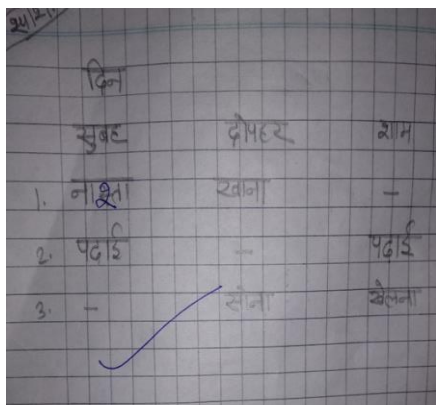 दिन
सुबह दोपहर शाम
1. नाश्ता खाना -
2. पढाई - पढाई
3. - सोना खेलना